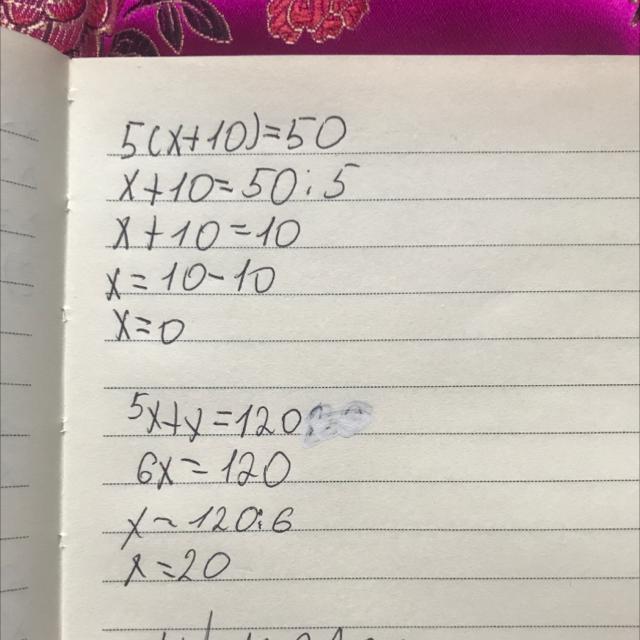 5(x+10)=50
x+10=50:5
x+10=10
x=10-10
x=0
5x+x=120
6x=120
x=120:6
x=20